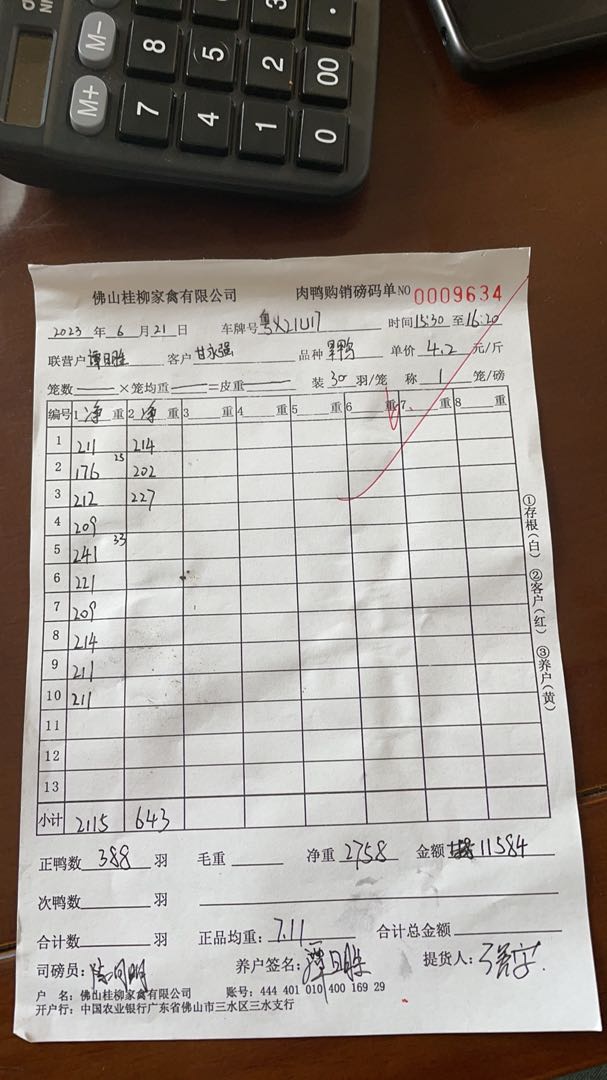 M-
M+
8
5
2
00
7
4
1
0
佛山桂柳家禽有限公司 肉鸭购销磅码单NO 0009634
2023 年 6 月 21 日 车牌号 粤X21U17 时间 15:30 至 16:20
联营户 谭日胜 客户 甘永强 品种 单价 4.2 元/斤
笼数 ×笼均重 =皮重 装 30 羽/笼 称 1 笼/磅
编号 1 净 重 2 净 重 3 重 4 重 5 重 6 重 7 重 8 重
1 211 214
2 176 25 202
3 212 227
4 209
5 241 33
6 221
7 209
8 214
9 211
10 211
11
12
13
小计 2115 643
正鸭数 388 羽 毛重 净重 2758 金额 11584
次鸭数 羽
合计数 羽 正品均重: 7.11 合计总金额
司磅员: 养户签名: 谭日胜 提货人:
户 名: 佛山桂柳家禽有限公司 账号: 444 401 010 400 169 29
开户行: 中国农业银行广东省佛山市三水区三水支行
①存根(白) ②客户(红) ③养户(黄)